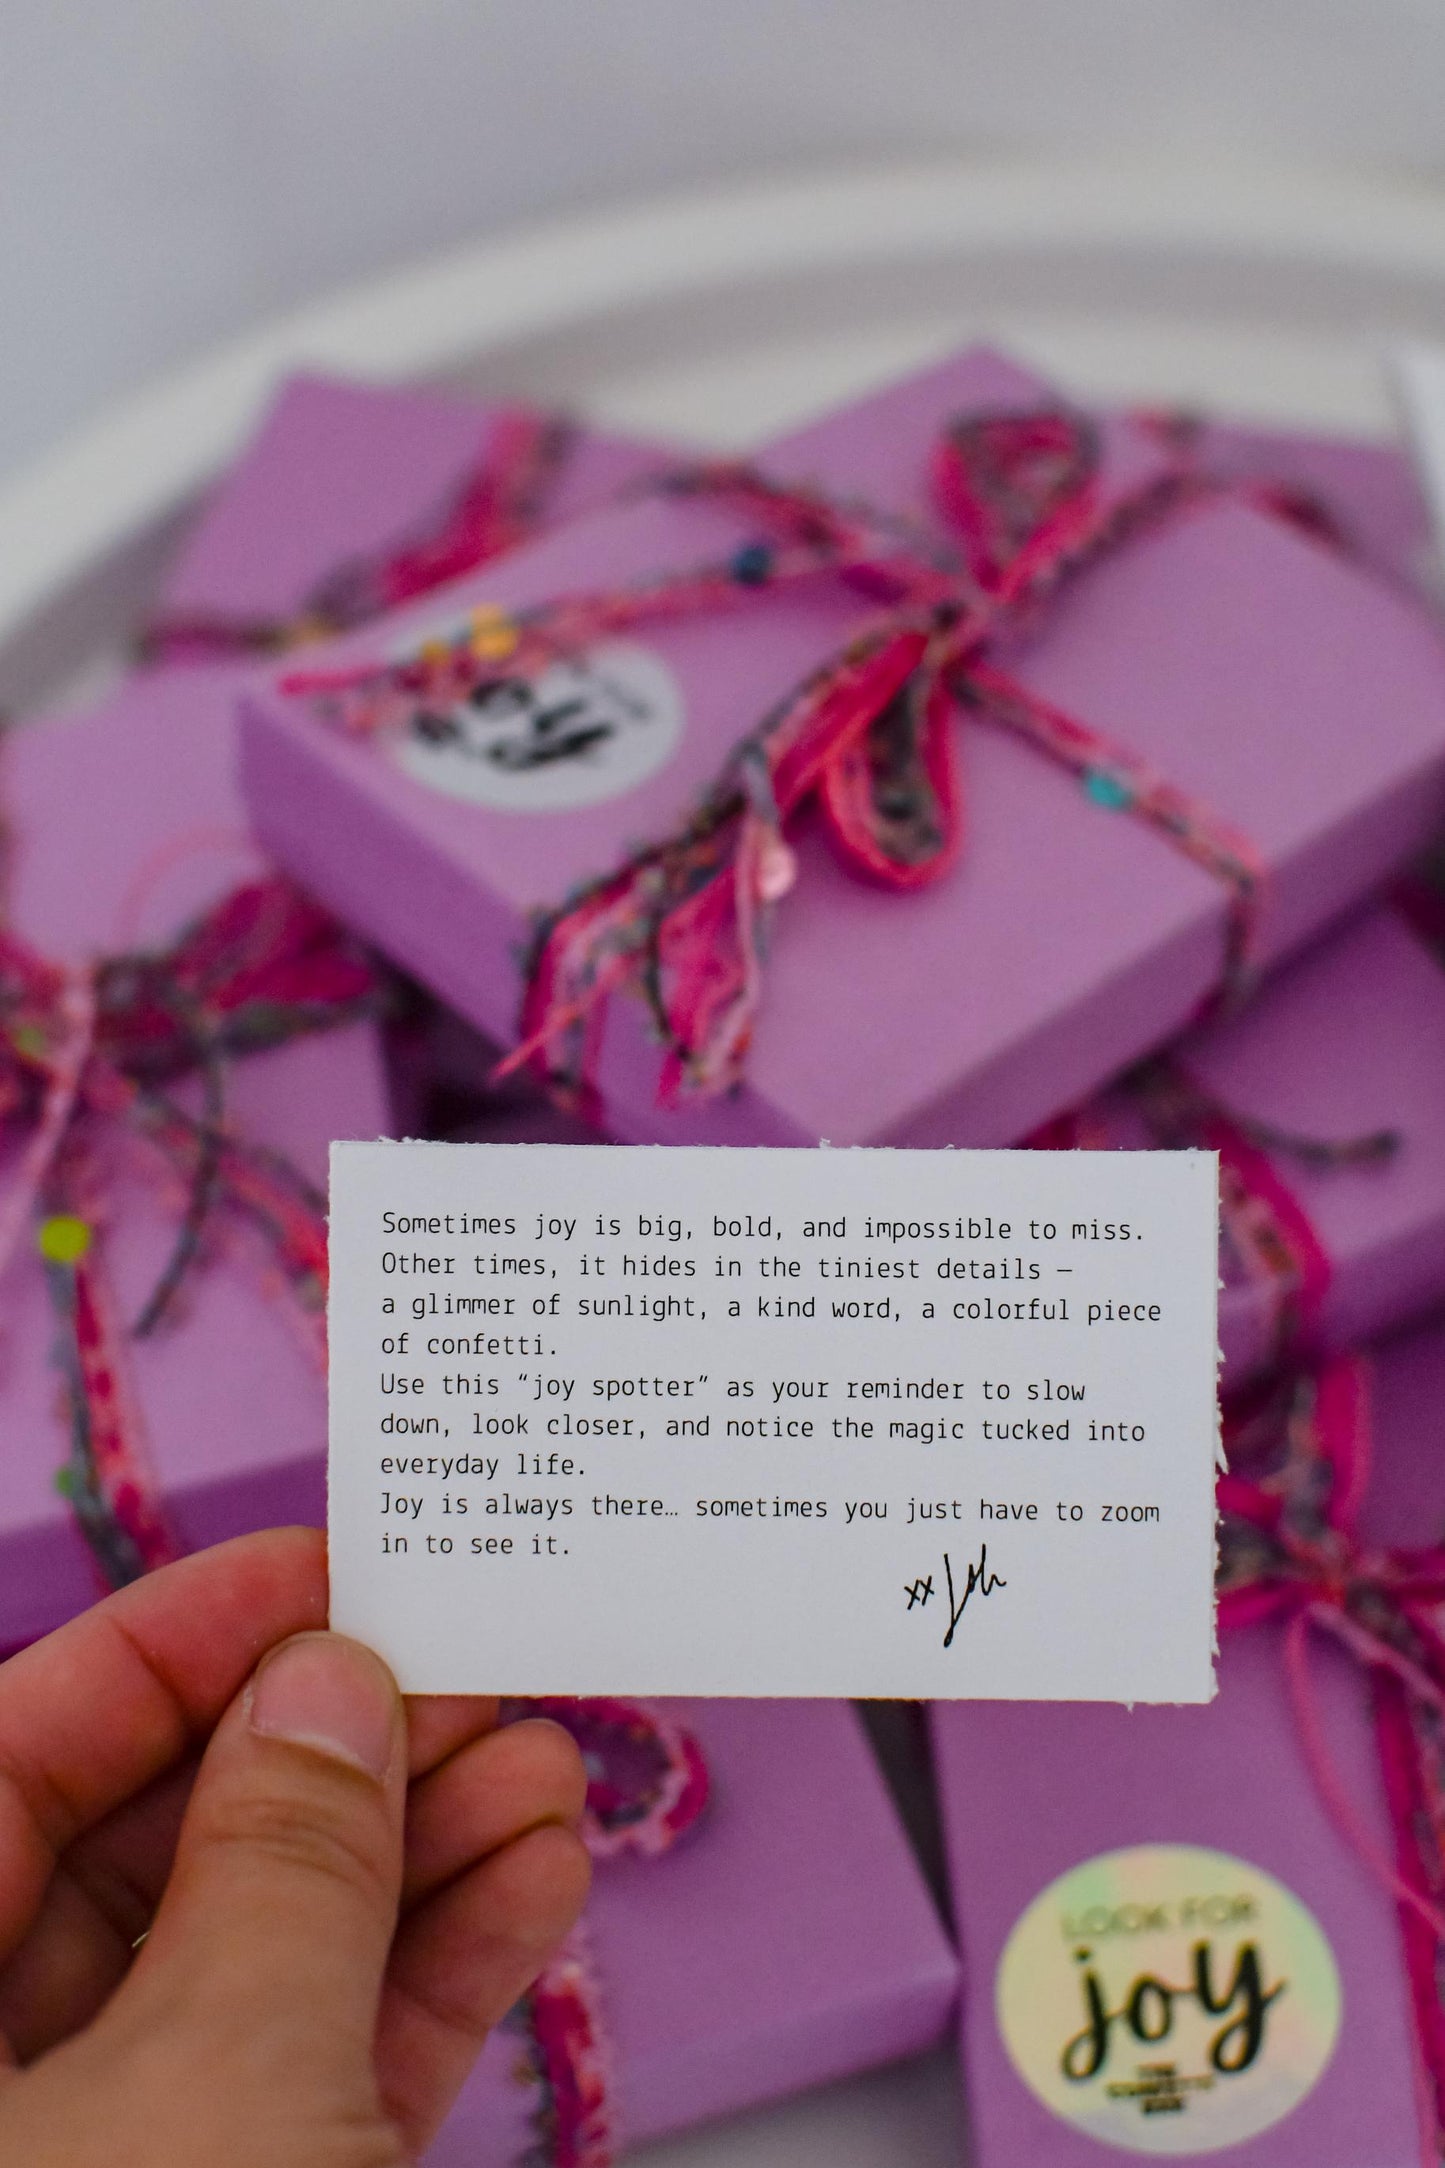 Sometimes joy is big, bold, and impossible to miss.
Other times, it hides in the tiniest details —
a glimmer of sunlight, a kind word, a colorful piece
of confetti.
Use this “joy spotter” as your reminder to slow
down, look closer, and notice the magic tucked into
everyday life.
Joy is always there… sometimes you just have to zoom
in to see it.
xx
LOOK FOR
joy
THE
CONFETTI
BAR